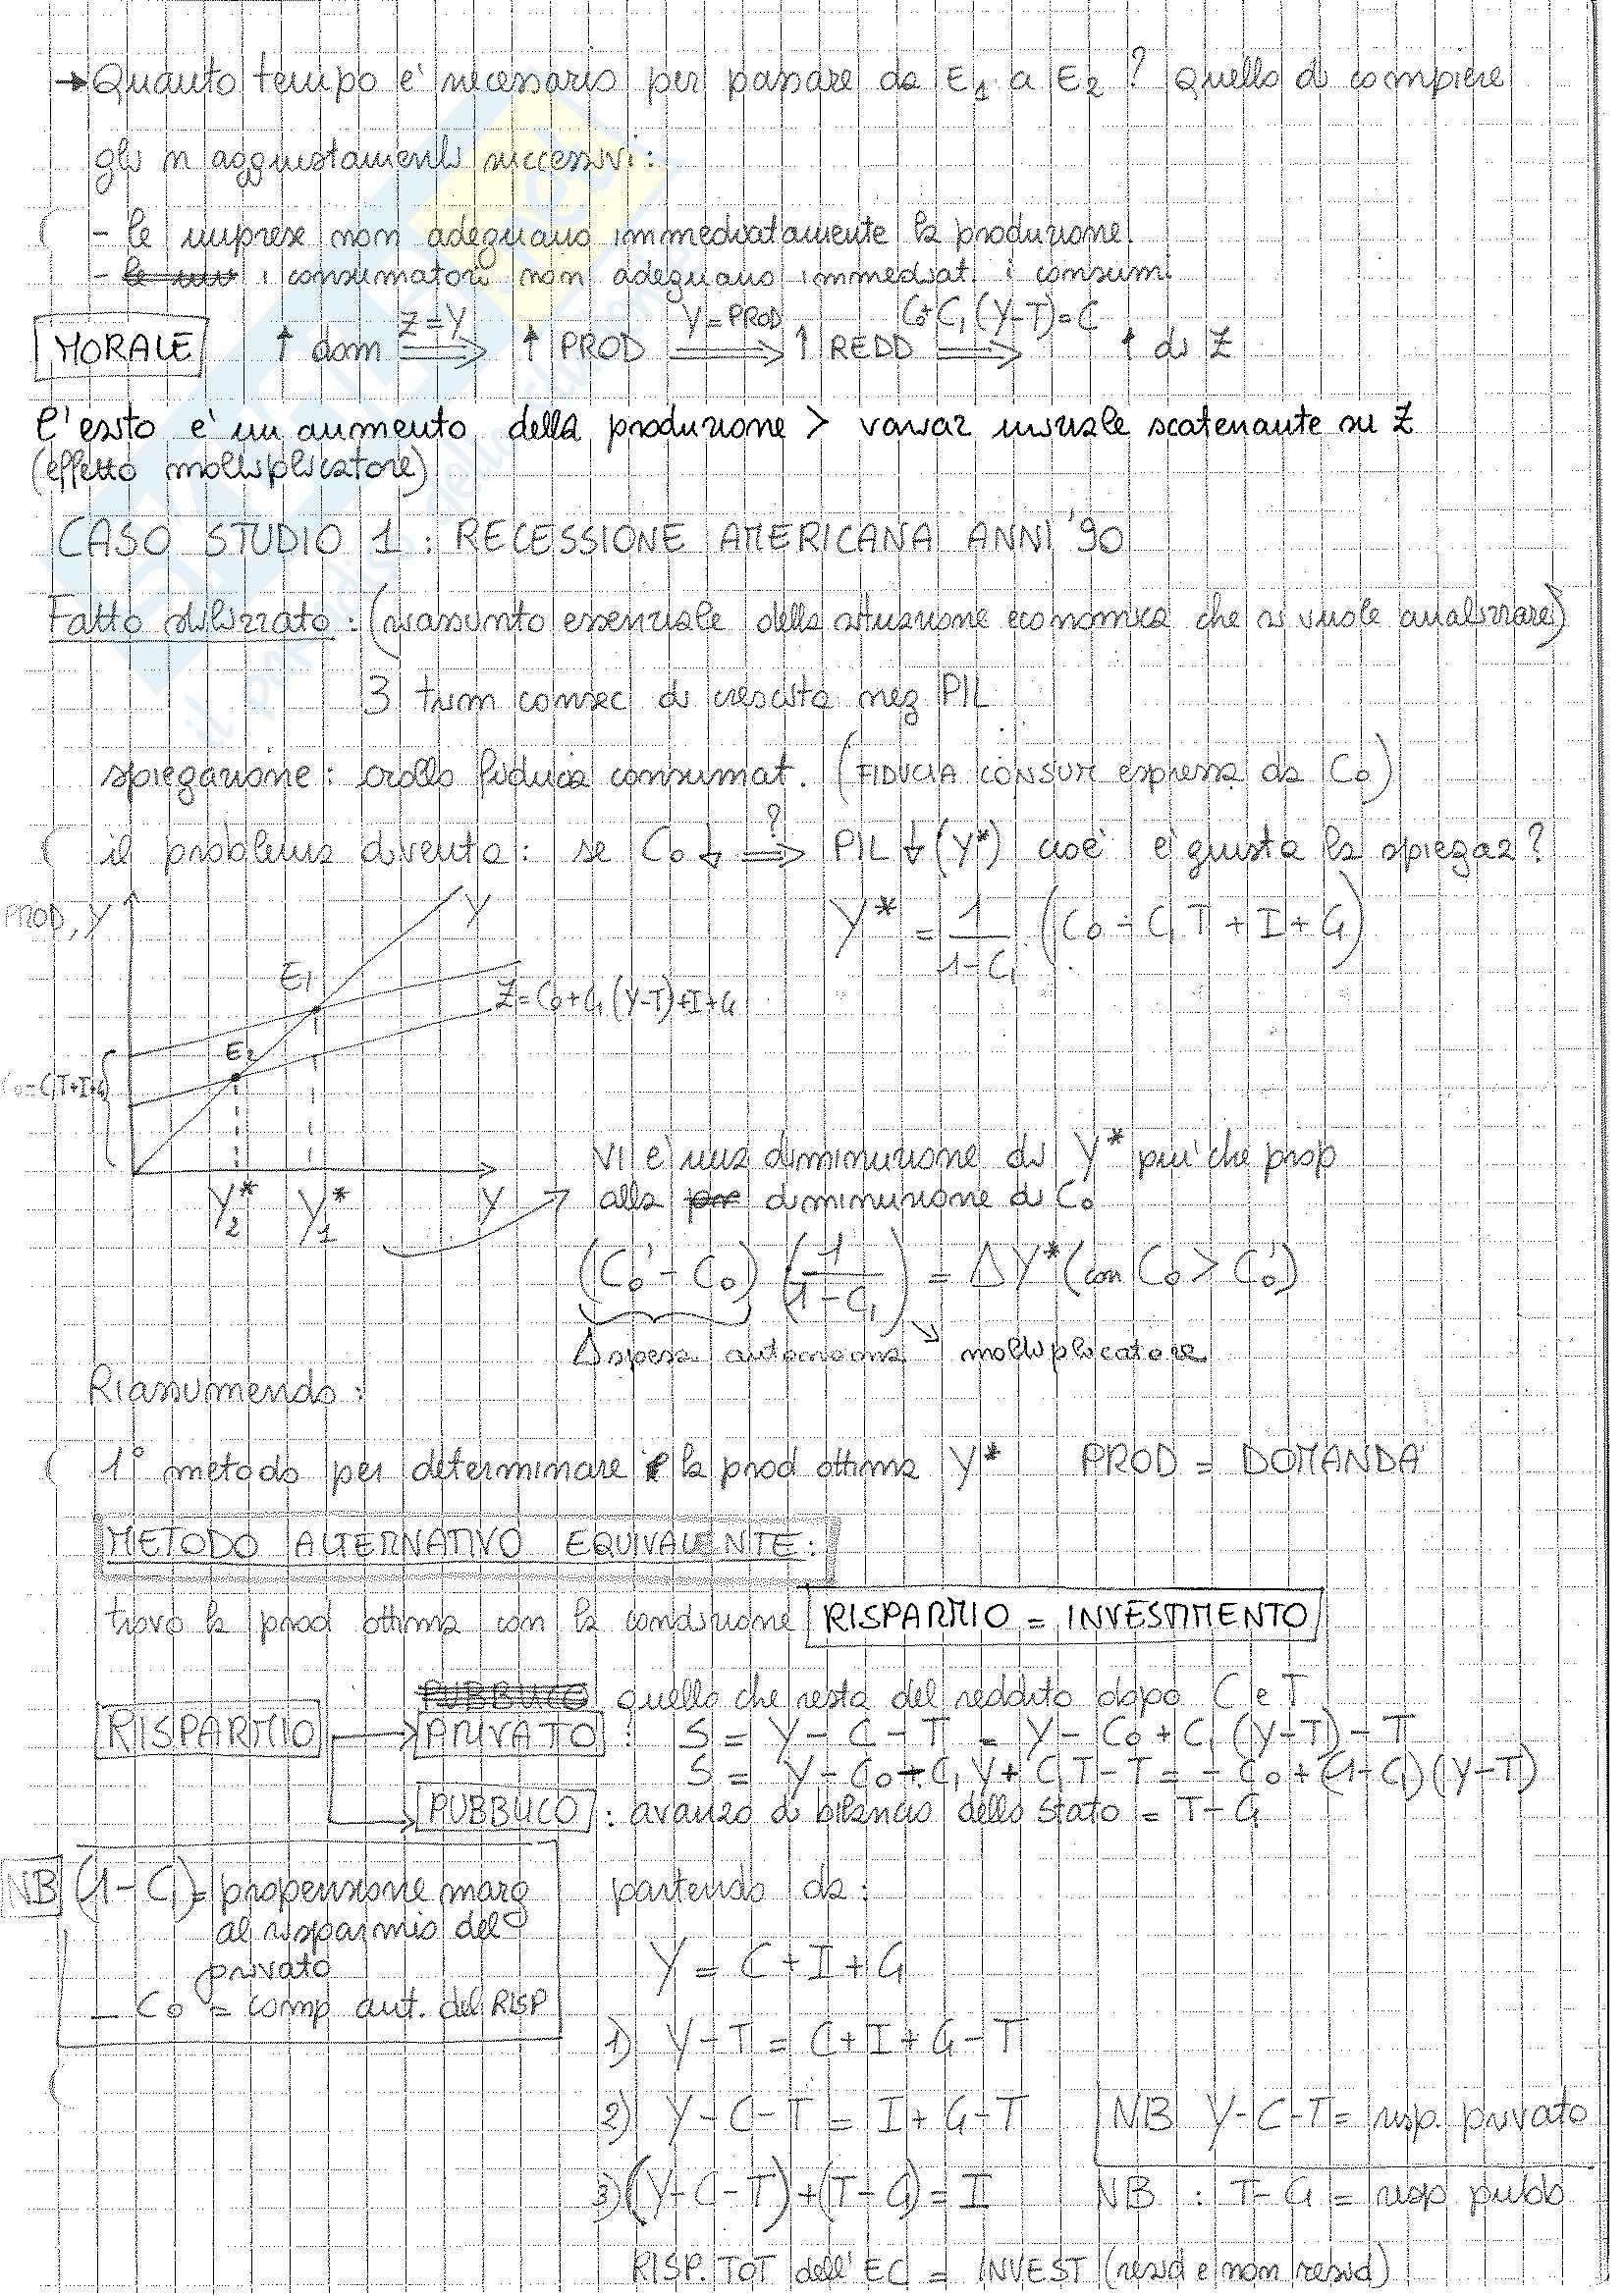 → Quanto tempo è necessario per passare da E1 a E2 ? Quello di compiere
gli n aggiustamenti successivi :
- le imprese non adeguano immediatamente la produzione.
- i consumatori non adeguano immediat. i consumi
MORALE ↑ dom Z=Y ⇒ ↑ PROD Y=PROD ⇒ ↑ REDD C0+C1(Y-T)=C ⇒ ↑ di Z
l'esito è un aumento della produzione > variaz iniziale scatenante su Z
(effetto moltiplicatore)
CASO STUDIO 1 : RECESSIONE AMERICANA ANNI '90
Fatto stilizzato : (riassunto essenziale della situazione economica che si vuole analizzare)
3 trim consec di crescita neg PIL
spiegazione : crollo fiducia consumat. (FIDUCIA CONSUM espressa da C0)
il problema diventa : se C0 ↓ ?⇒ PIL ↓ (Y*) cioè è giusta la spiegaz ?
PROD, Y
Y
Y* = 1/(1-C1) . (C0 - C1T + I + G)
E1
Z = C0+C1(Y-T)+I+G
E2
C0-C1T+I+G
Y2* Y1* Y
VI è una diminuzione di Y* più che prop
alla diminuzione di C0
(C0' - C0) (1/(1-C1)) = ΔY* (con C0 > C0')
Δ spesa autonoma moltiplicatore
Riassumendo :
1° metodo per determinare la prod ottima Y* PROD = DOMANDA
METODO ALTERNATIVO EQUIVALENTE :
trovo la prod ottima con la condizione RISPARMIO = INVESTIMENTO
quello che resta del reddito dopo C e T
RISPARMIO → PRIVATO : S = Y - C - T = Y - C0 + C1 (Y-T) - T
S = Y - C0 - C1Y + C1T - T = - C0 + (1-C1)(Y-T)
→ PUBBLICO : avanzo di bilancio dello stato = T - G
NB (1-C1) = propensione marg
al risparmio del
privato
- C0 = comp aut. del RISP
partendo da :
Y = C + I + G
1) Y - T = C + I + G - T
2) Y - C - T = I + G - T NB Y-C-T = risp. privato
3) (Y-C-T)+(T-G) = I NB : T-G = risp pubb
RISP. TOT dell'EC = INVEST (resid e non resid)